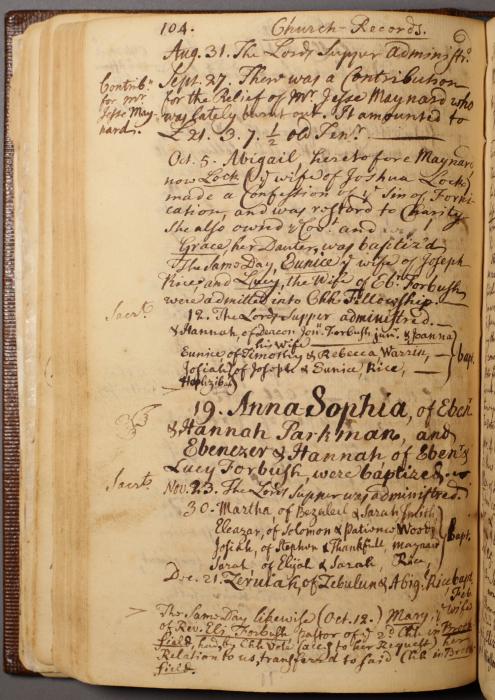 104. Church-Records.
Aug. 31. The Lords Supper administrd.
Sept. 27. There was a Contribution
Contribn
for Mr
Jesse May-
nard.
for the Relief of Mr Jesse Maynard who
was lately burnt out. It amounted to
£21. 3. 7. ½ old Tenr.
Oct. 5. Abigail heretofore Maynard
now Lock (ye wife of Joshua Lock)
made a Confession of ye Sin of Forni-
cation, and was restord to Charity.
She also ownd ye Covt. and
Grace her Daugter, was baptiz'd
The Same Day, Eunice ye wife of Joseph
Rice, and Lucy, the Wife of Ebr. Forbush
were admitted into Chh Fellowship.
Sacrt. 12. The Lords Supper administred.
& Hannah, of Deacon Jonn. Forbush junr. & Joanna
his Wife
Eunice, of Timothy & Rebecca Warrin,
Josiah, of Joseph & Eunice, Rice,
Hephzibah
bapt.
19. Anna Sophia, of Eben.
& Hannah Parkman, and
Ebenezer & Hannah of Ebenr. &
Lucy Forbush, were baptized.
Sacrt. Nov. 23. The Lords Supper was administred.
30. Martha of Bezaleel & Sarah Smith,
Eleazar, of Solomon & Patience Wood,
Josiah, of Stephen & Thankfull, Maynard
Sarah, of Elijah & Sarah, Rice,
bapt.
Dec. 21. Zerviah, of Zebulun & Abig. Rice, bapt.
The Same Day likewise (Oct. 12.) Mary, ye wife
of Rev. Eli Forbush Pastor of ye 2d Chh in Brook
field, had, by Chh Vote (acc. to her Request) her
Relation to us, transferr'd to said Chh in Brook-
field.